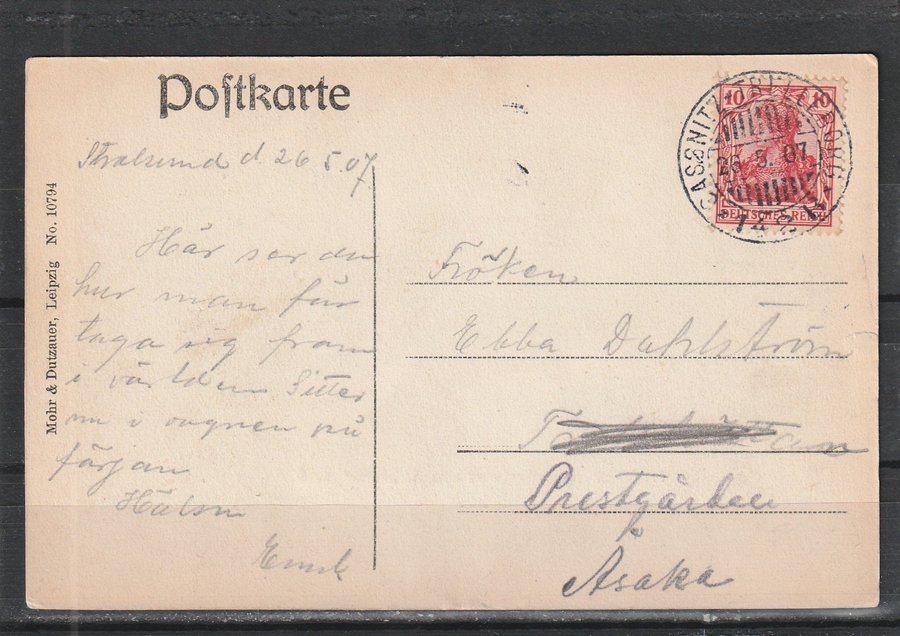 Postkarte
Stralsund d 26 5.07
Här ser du
hur man får
taga sig fram
i världen Sitter
nu i vagnen på
färjan
Hälsn
Mohr & Dutzauer, Leipzig No. 10794
10 10
DEUTSCHES REICH
SASSNITZ-TRELLEBORG
26 5. 07
142
Fröken
Ebba Dahlström
Prestgården
Asaka